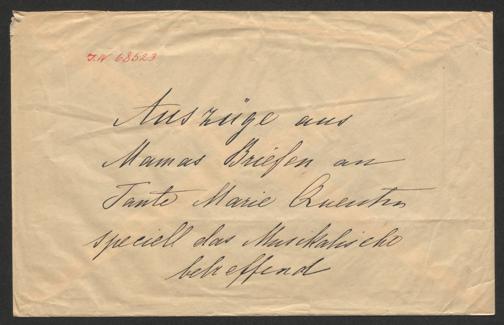 I.N 68523
Auszüge aus
Mamas Briefen an
Tante Marie Quentin
speciell das Musikalische
betreffend